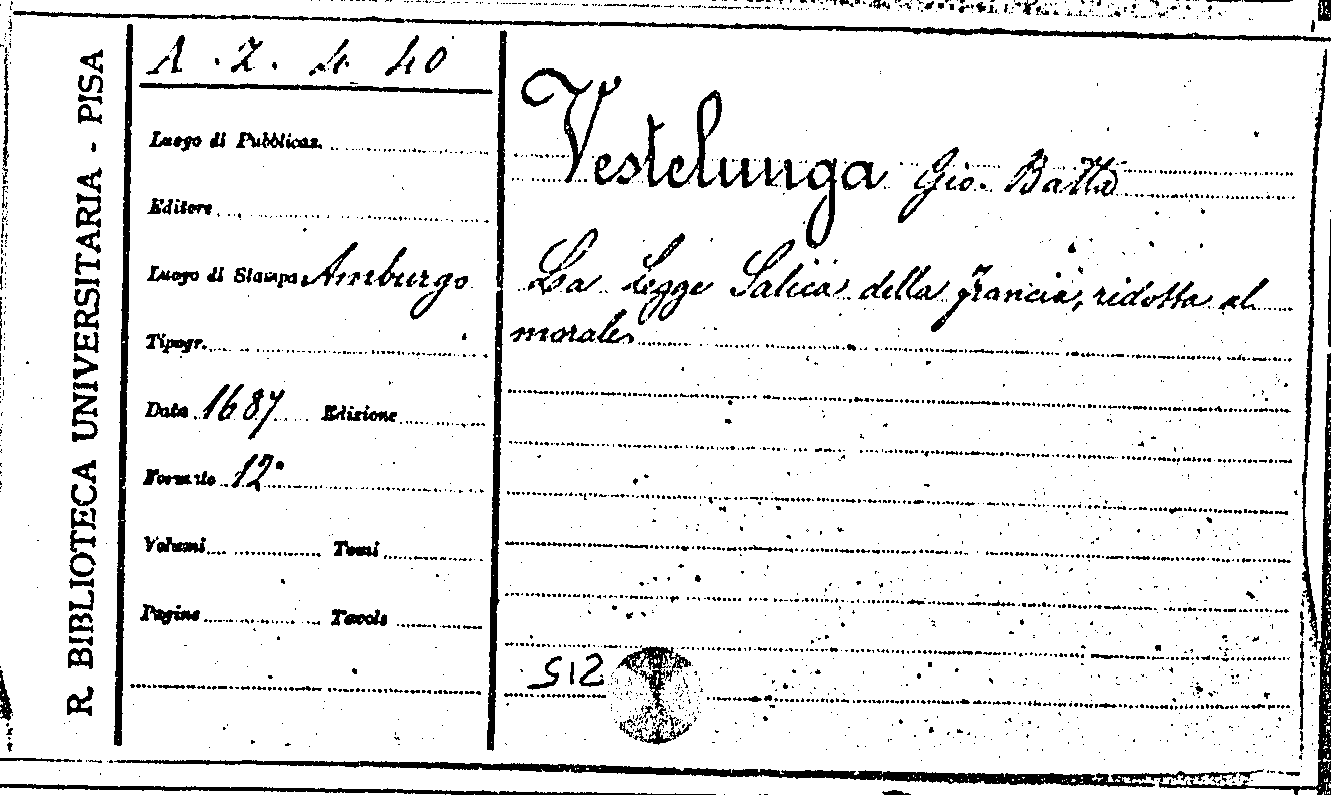 R. BIBLIOTECA UNIVERSITARIA - PISA
A . Z . 4. 40
Luogo di Pubblicaz.
Editore
Luogo di Stampa Amburgo
Tipogr.
Data 1687 Edizione
Formato 12°
Volumi Tomi
Pagine Tavole
Vestelunga Gio. Batta
La Legge Salica della Francia, ridotta al
morale
S12